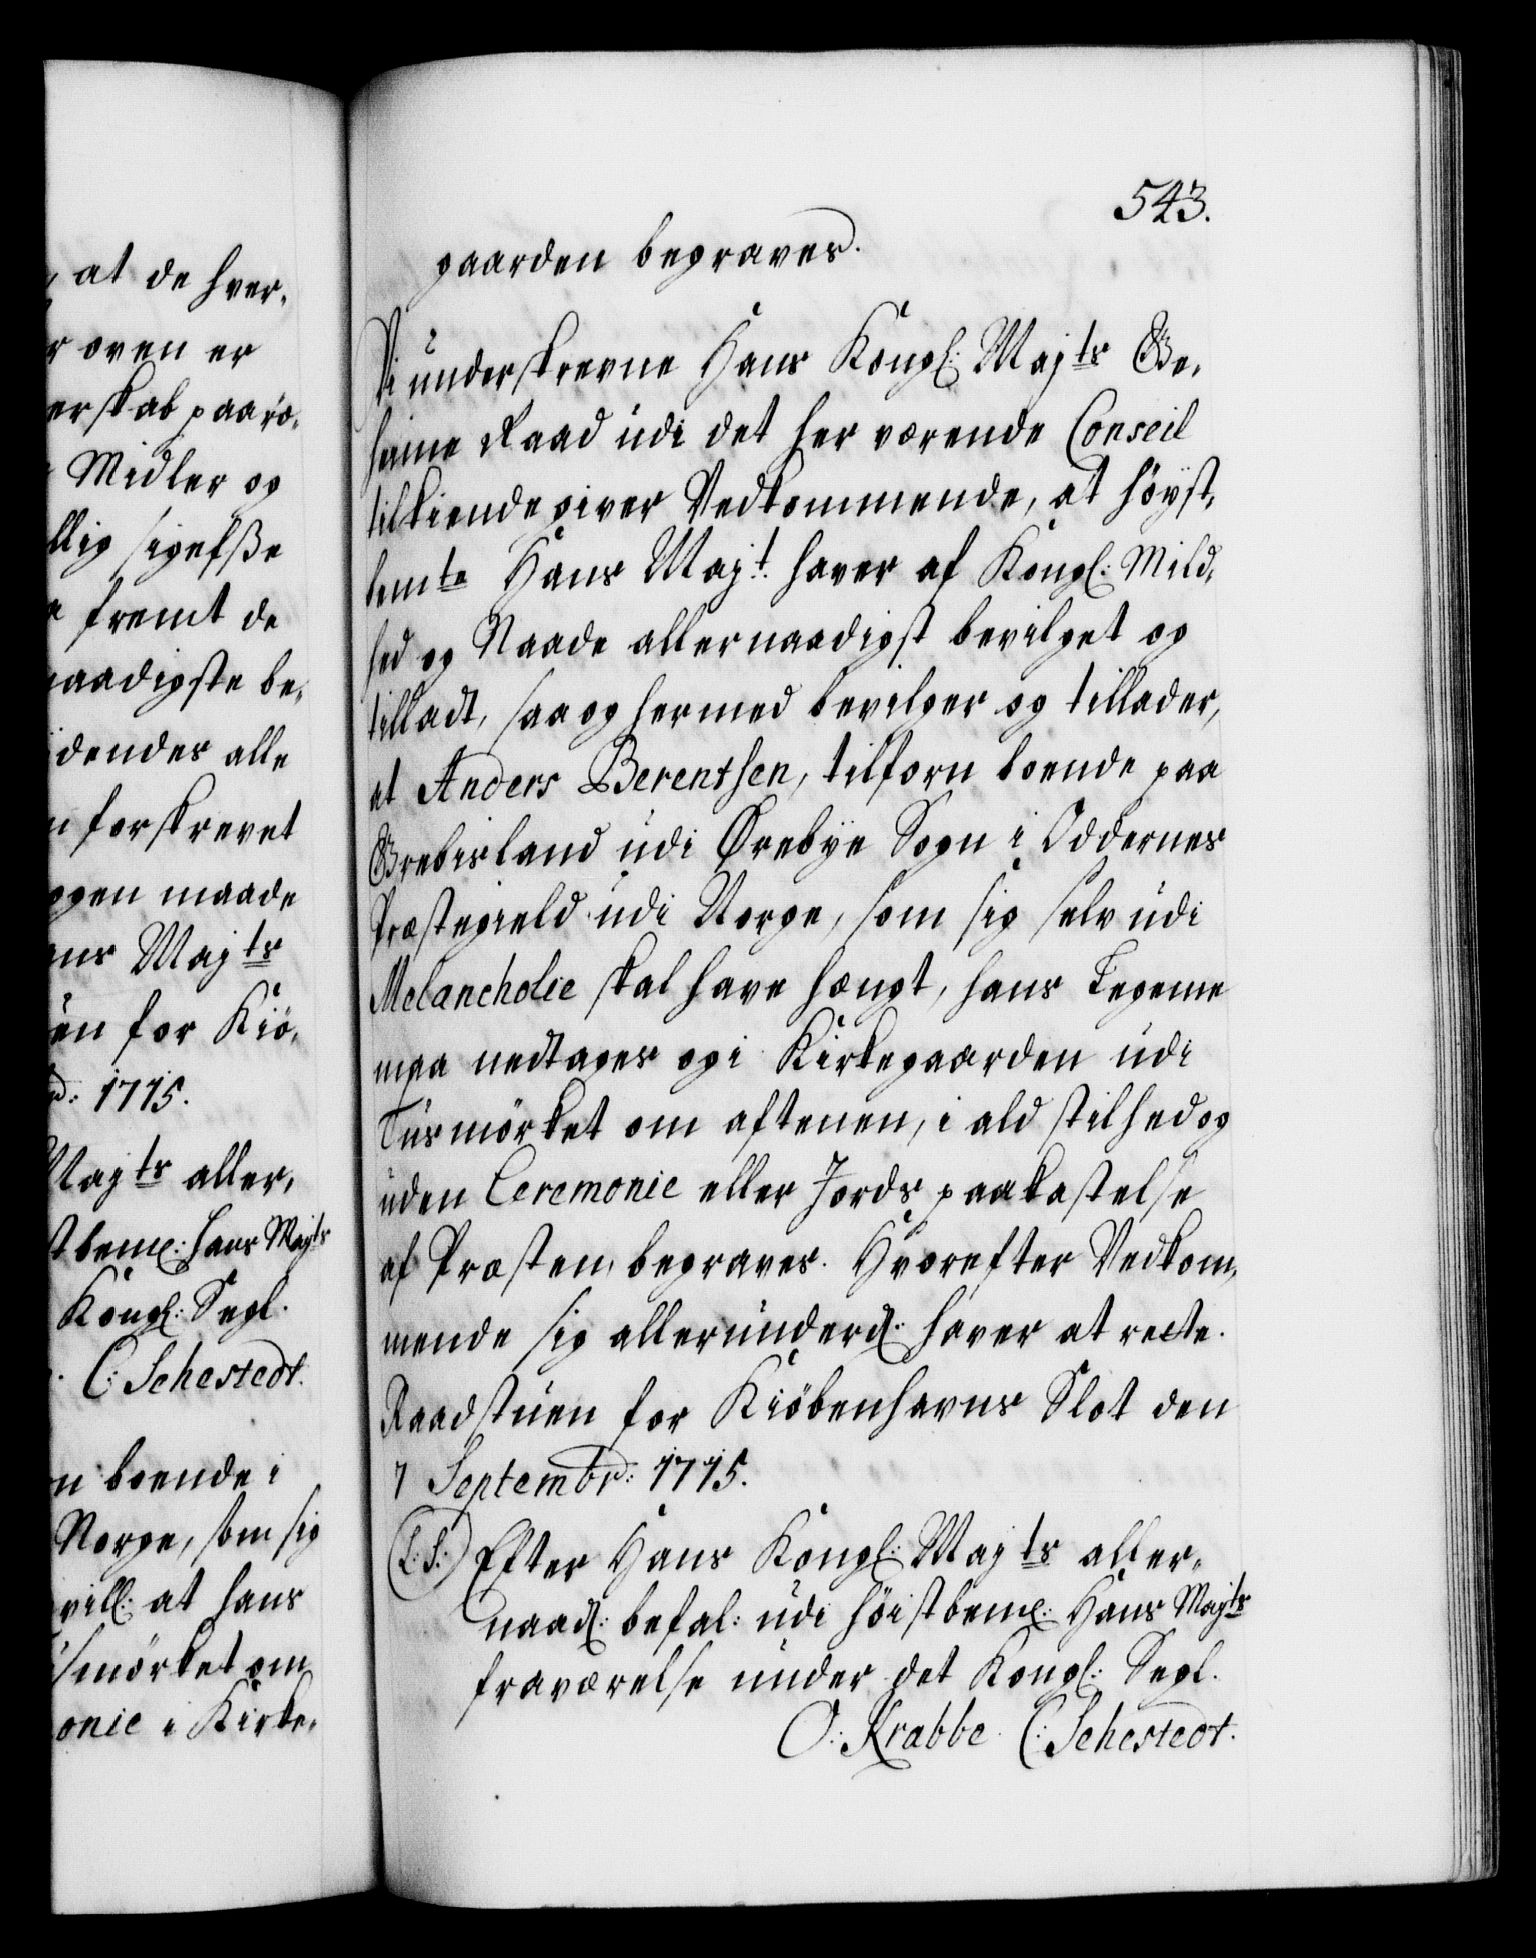 at de hver,
r oven er
er skab paarö,
Midler og
llig
fremt de
aadigste be,
dendes alle
forskrevet
ggen maade
ns Majts
en for Kiö,
1715.
Majts aller,
stbem: Hans Majts
Kongl: Segl.
C: Sehestedt.
n boende i
Norge, som sig
vill: at hans
smörket om
onie i Kirke,
543.
gaarden begraves.
Vi underskrevne Hans Kongl: Majts Ge,
heime Raad udi det her værende Conseil
tilkiendegiver Vedkommende, at höyst,
bemte Hans Majt. haver af Kongl: Mild,
hed og Naade allernaadigst bevilget og
tilladt, saa og hermed bevilger og tillader,
at Anders Berentsen, tilforn boende paa
Grebisland udi Ørebye Sogn i Oddernes
Præstegield udi Norge, som sig selv udi
Melancholie skal have hængt, hans Legeme
maa nedtages og i Kirkegaarden udi
Tusmörket om aftenen, i ald stilhed og
uden Ceremonie eller Jords paakastelse
af Præsten, begraves. Hvorefter Vedkom,
mende sig allerunderd: haver at rette.
Raadstuen for Kiöbenhavns Slot den
7 Septembr: 1715.
(L: S:) Efter Hans Kongl: Majts aller,
naad: befal: udi höistbem: Hans Majts
fraværelse under det Kongl: Segl.
O: Krabbe C: Sehestedt.